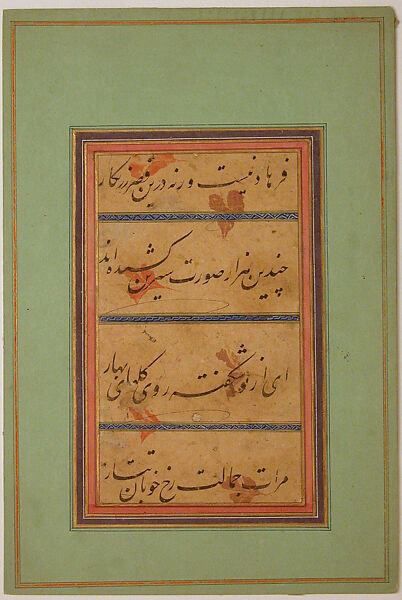 فرهاد نیست ورنه درین قصر زرنگار
چندین هزار صورت شیرین کشیده‌اند
ای از تو شکفته روی گلهای بهار
مرات جمالت رخ خوبان تتار